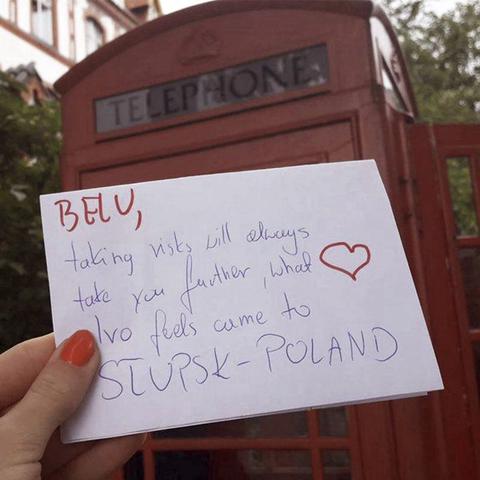 TELEPHONE
BELU,
taking risks will always
take you further, what
Ivo feels came to
SŁUPSK-POLAND